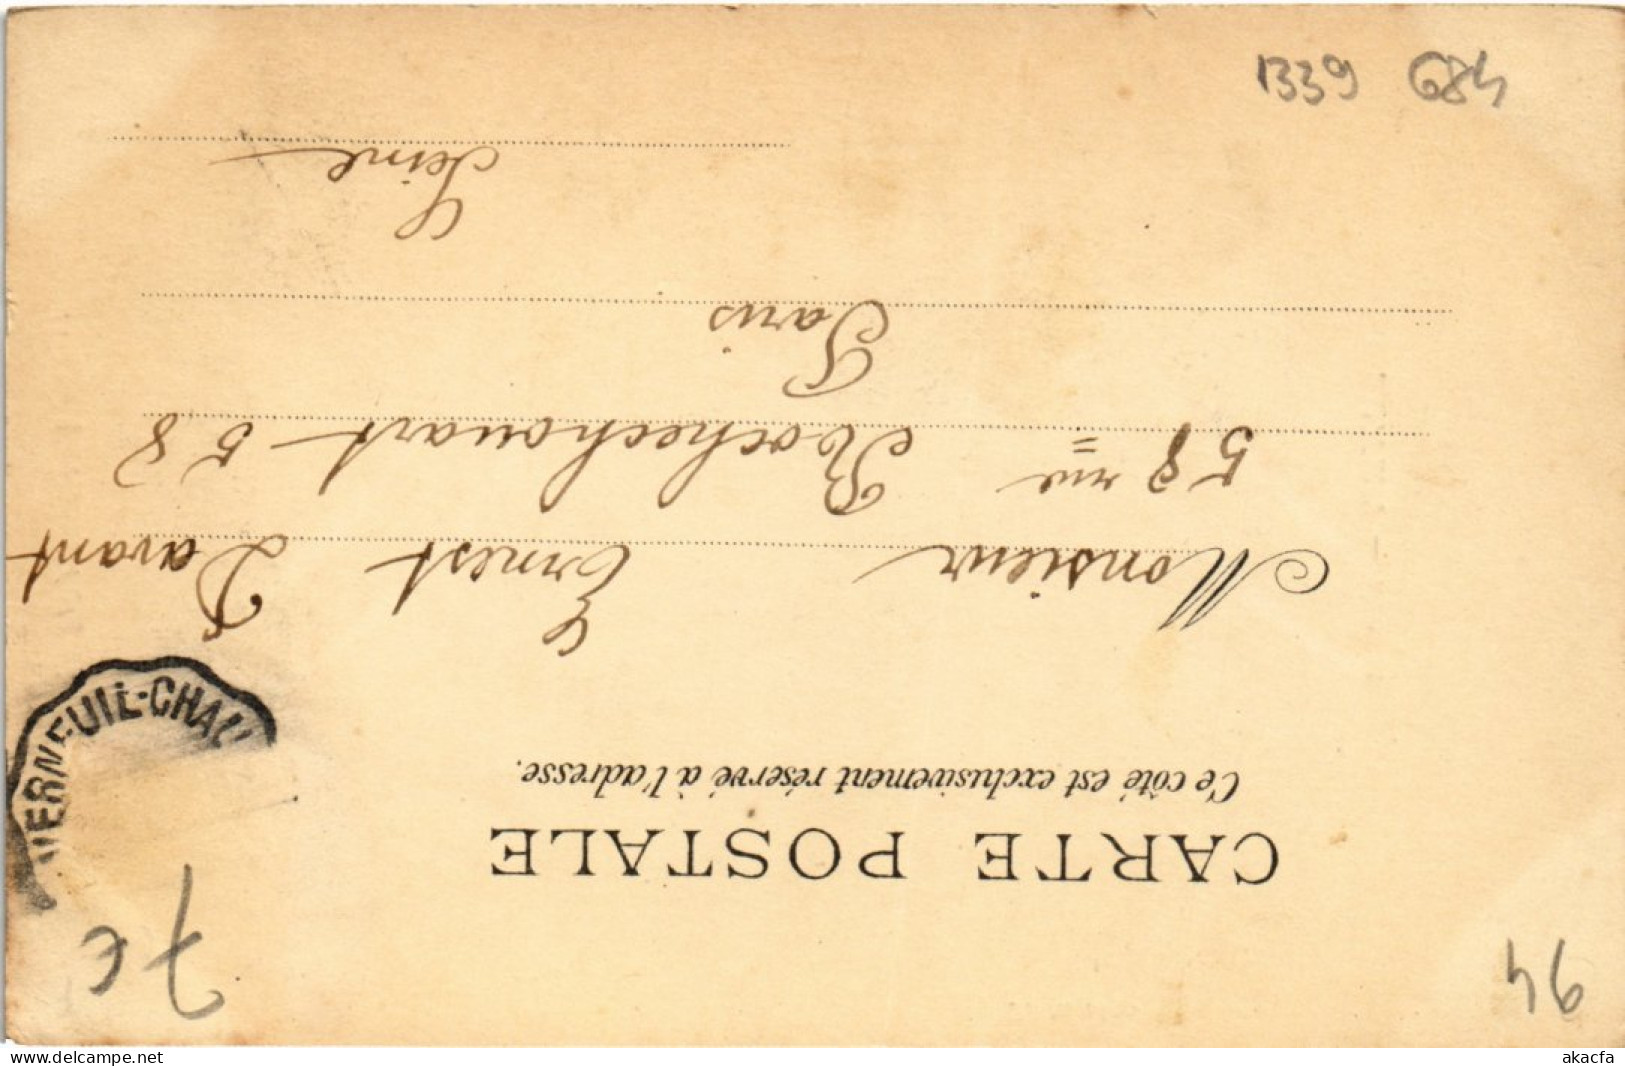 CARTE POSTALE
Ce côté est exclusivement réservé à l'adresse.
Monsieur Ernest Davant
58 rue Rochechouart 58
Paris
Seine
VERNEUIL-CHAU
7€
94
1339 684
www.delcampe.net
akacfa